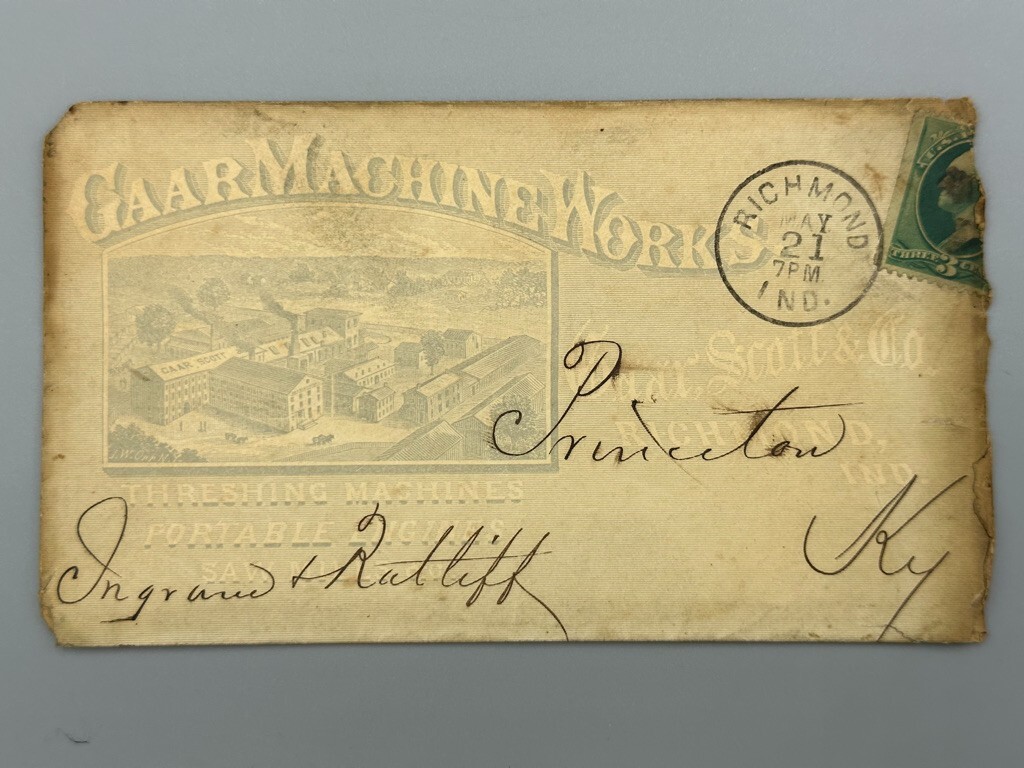 GAAR MACHINE WORKS
RICHMOND
MAY
21
7PM
IND.
THREE 3
GAAR SCOTT
Gaar, Scott & Co.
RICHMOND,
IND.
Princeton
Ky
THRESHING MACHINES
PORTABLE ENGINES
SAW
Ingram & Ratliff